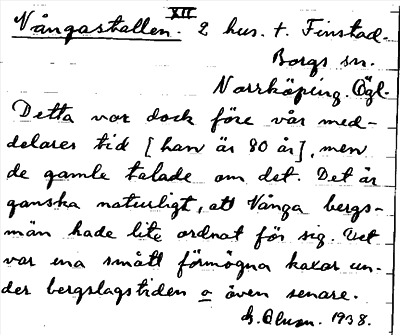 XII
Vångastallen. 2 hus. t. Finstad.
Borgs sn.
Norrköping. Ögl.
Detta var dock före vår med-
delares tid [han är 80 år], men
de gamle talade om det. Det är
ganska naturligt, att Vånga bergs-
män hade lite ordnat för sig. Det
var ena smått förmögna kaxar un-
der bergslagstiden o även senare.
1938.